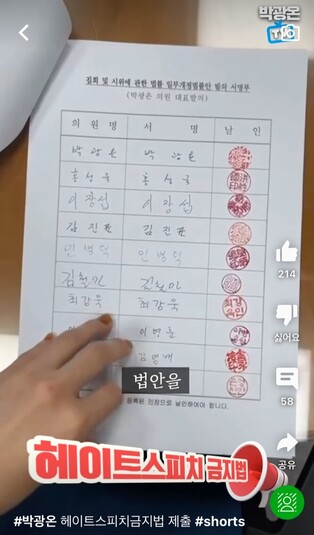 박광온
TV
집회 및 시위에 관한 법률 일부개정법률안 발의 서명부
(박광온 의원 대표발의)
의 원 명 서 명 날 인
박 광 온 박 광 온
홍 성 국 홍 성 국
이 장 섭 이 장 섭
김 진 표 김 진 표
민 병 덕 민 병 덕
김 철 민 김 철 민
최 강 욱 최 강 욱
이 병 훈
김 영 배
등록된 인장으로 날인하여야 합니다.
법안을
214
싫어요
58
공유
헤이트스피치 금지법
#박광온 헤이트스피치금지법 제출 #shorts